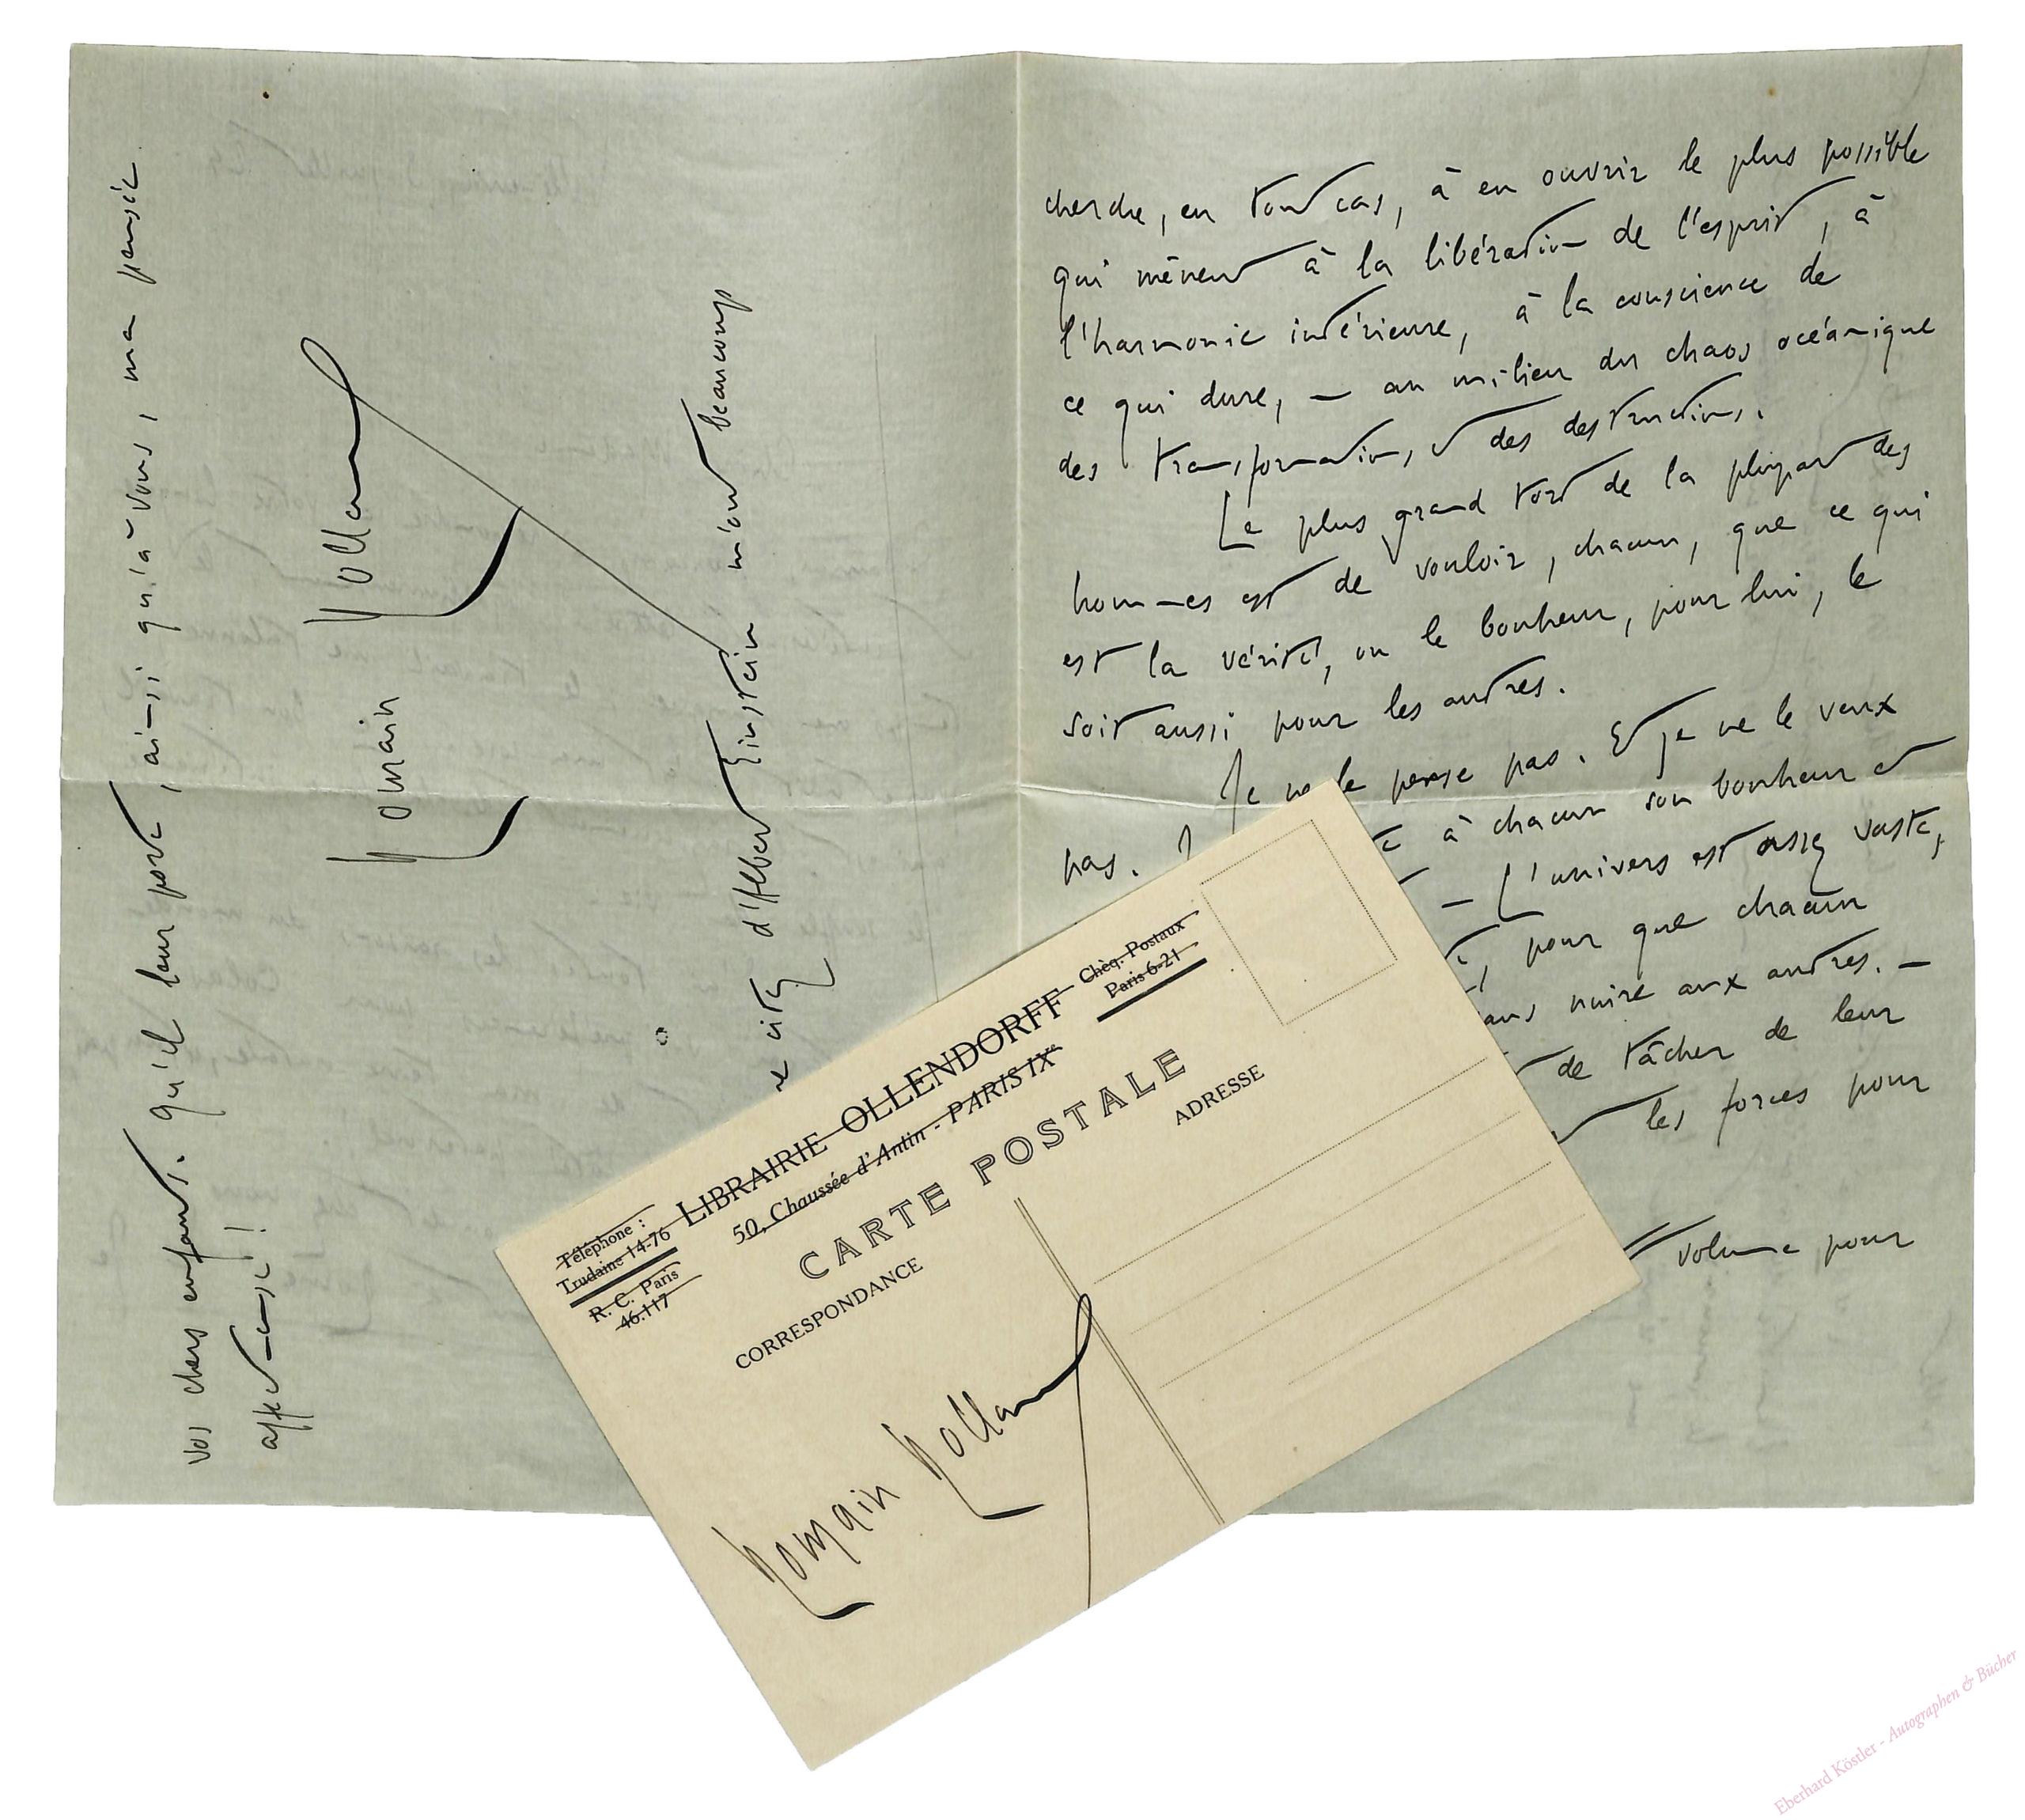 cherche, en tout cas, à en ouvrir le plus possible
qui mènent à la libération de l'esprit, à
l'harmonie intérieure, à la conscience de
ce qui dure, — au milieu du chaos océanique
des transformations et des destructions.
Le plus grand tort de la plupart des
hommes est de vouloir, chacun, que ce qui
est la vérité, ou le bonheur, pour lui, le
soit aussi pour les autres.
Je ne le pense pas. Et je ne le veux
pas. à chacun son bonheur et
— L'univers est assez vaste,
pour que chacun
nuire aux autres. —
de tâcher de leur
les forces pour
volume pour
vos chers enfants. qu'il leur porte, ainsi qu'à vous, ma pensée
affectueuse!
Romain Rolland
citez d'Albert Einstein m'ont beaucoup
Téléphone :
Trudaine 14-76
R. C. Paris
46.117
LIBRAIRIE OLLENDORFF
50, Chaussée d'Antin - PARIS IXe
Chèq. Postaux
Paris 6-21
CARTE POSTALE
CORRESPONDANCE
ADRESSE
Romain Rolland
Eberhard Köstler - Autographen & Bücher